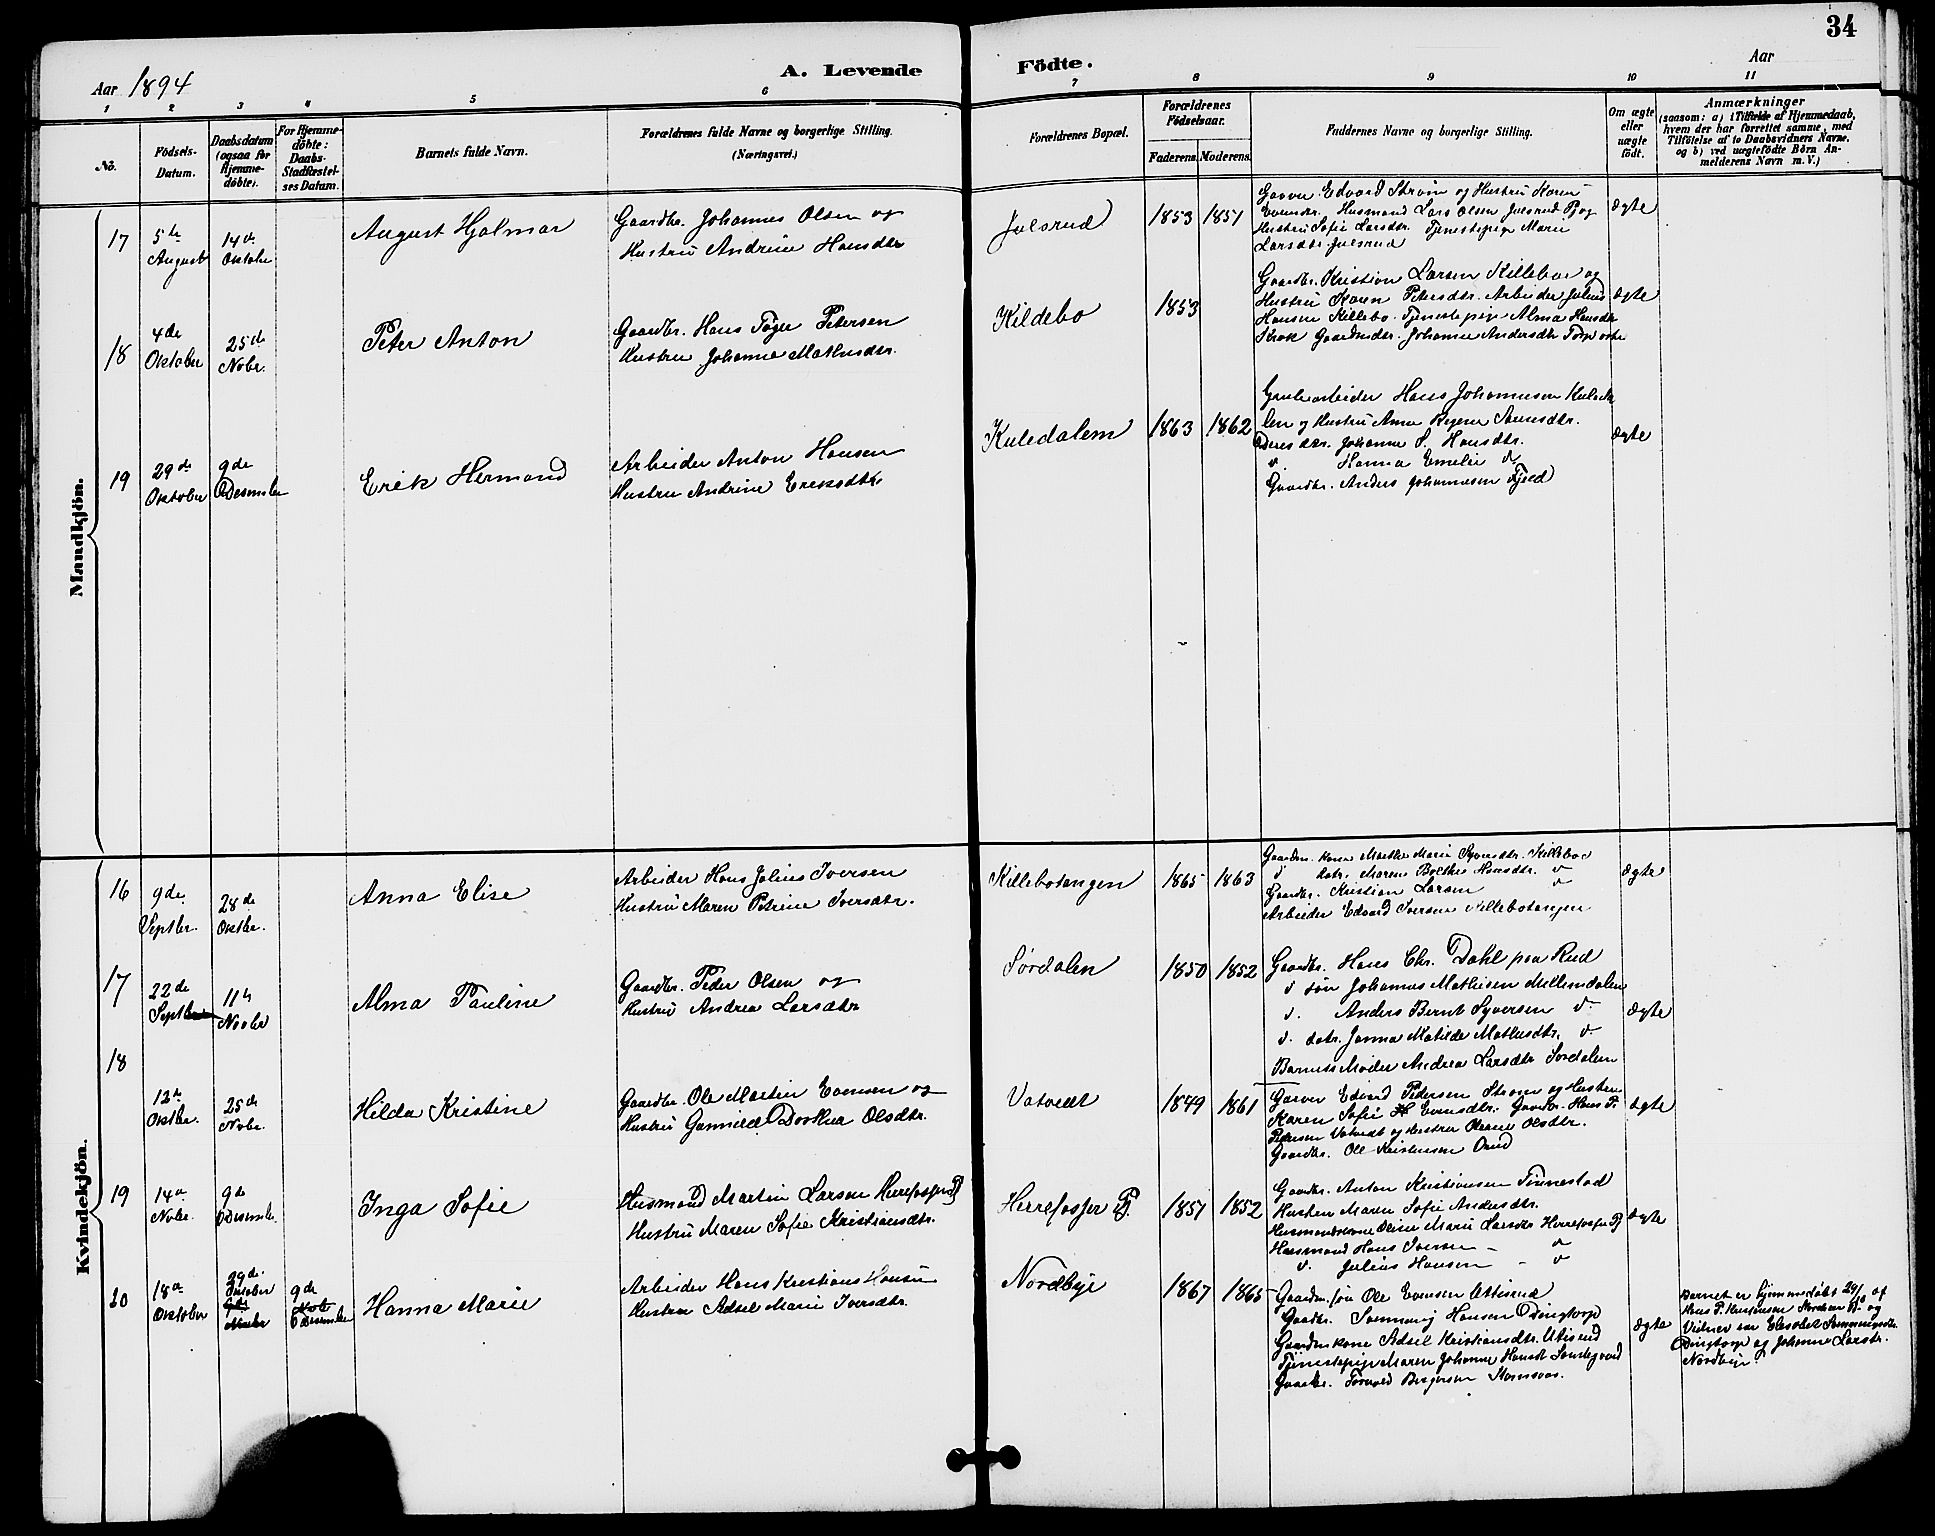 34
Aar 1894
A. Levende Födte.
Aar
1 2 3 4 5 6 7 8 9 10 11
No.
Födsels-Datum.
Daabsdatum (ogsaa for Hjemme-döbte).
For Hjemme-döbte: Daabs-Stadfæstelses Datum.
Barnets fulde Navn.
Forældrenes fulde Navne og borgerlige Stilling.
(Næringsvei.)
Forældrenes Bopæl.
Forældrenes Födselsaar.
Faderens. Moderens.
Faddernes Navne og borgerlige Stilling.
Om ægte eller uægte födt.
Anmærkninger
(saasom: a) i Tilfælde af Hjemmedaab,
hvem der har forrettet samme, med
Tilföielse af to Daabsvidners Navne,
og b) ved uægtefödte Börn An-
melderens Navn m. V.)
Mandkjön.
17
5te August
14de Oktober
August Hjalmar
Gaardbr. Johannes Olsen og
Hustru Andrine Hansdtr
Julsrud
1853 1851
Garver Edvard Strøm og Hustru Karen
Evensdtr. Husmand Lars Olsen Julsrud Pj og
Hustru Sofie Larsdtr. Tjenestepige Maren
Larsdtr Julsrud
ægte
18
4de Oktober
25de Nobr.
Peter Anton
Gaardbr. Hans Tøger Petersen
Hustru Johanne Mathisdtr.
Kildebo
1853
Gaardbr. Kristian Larsen Killebo og
Hustru Karen Petersdtr. Arbeider Julius
Hansen Killebo. Tjenestepige Alma Hansdtr
Krok Gaardmdtr. Johanne Andersdtr Torp
ægte
19
29de Oktober
9de Desember
Erik Hermand
Arbeider Anton Hansen
Hustru Andrine Eriksdtr
Kuledalem
1863 1862
Hans Johannesen
og Hustru Anne
Deres dtr. Johanne S. Hansdtr.
d Hanna Emelie d
Gaardbr. Anders Johannesen Fjeld
ægte
Kvindekjön.
16
9de Septbr.
28de Oktbr.
Anna Elise
Arbeider Hans Julius Iversen
Hustru Maren Petrine Iversdtr.
Killebotangen
1865 1863
Gaardm. kone Marthe Marie Syversdtr. Killebo
d datr. Maren Bolthe Hansdtr. d
Gaardbr. Kristian Larsen d
Arbeider Edvard Iversen Killebotangen
ægte
17
22de Septbr
11te Novbr
Alma Pauline
Gaardbr. Peder Olsen og
Hustru Andrea Larsdtr
Sørdalen
1850 1852
Gaardbr. Hans Chr. Dahl paa Rud
d søn Johannes Mathisen Mellemdalen
d. Anders Bernt Syversen d
d. datr. Janna Matilde Mathisdtr. d
Barnets Moder Andrea Larsdtr Sørdalen
ægte
18
12te Oktbr.
25de Nobr.
Hilda Kristine
Gaardbr. Ole Martin Evensen og
Hustru Gunnild Dorthea Olsdtr.
Vatvedt
1849 1861
Garver Edvard Petersen Strøm og Hustru
Karen Sofie Evensdtr. Gaardbr. Hans P.
Petersen Vatvedt og Hustru Oleane Olsdtr.
Gaardbr. Ole Kristensen
ægte
19
14de Nobr.
9de Desember
Inga Sofie
Husmand Martin Larsen Herrefosser Pj
Hustru Maren Sofie Kristiansdtr.
Herrefosser Pj.
1851 1852
Gaardbr. Anton Kristiansen Tinnestad
Hustru Maren Sofie Andersdtr.
Husmandskone Oline Marie Larsdtr Herrefosser Pj
Husmand Hans Iversen – d
d. Julius Hansen – d
ægte
20
18de Oktober
29de Oktober
9de Desember
Hanna Marie
Arbeider Hans Kristians Hansen
Hustru Adsel Marie Iversdtr.
Nordbye
1867 1865
Gaardm. søn Ole Evensen Uttisrud
Gaardbr. Hansen Dingtorp
Gaardm kone Adsil Kristiansdtr. Utisrud
Tjenestepige Maren Johanne Hansdt
Gaardbr. Torvald Bergersen
ægte
Barnet er hjemmedøbt 29/10 af
Hans P. Pj. og
Vidner var Elisabet
Dingtorp og Johanne Larsdtr.
Nordbye